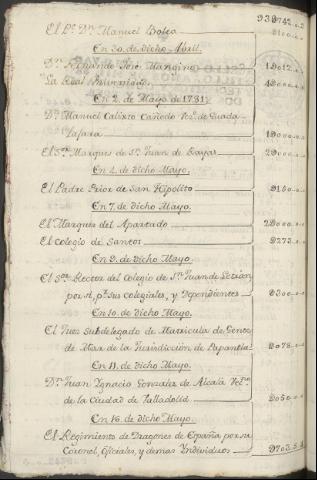 El P.e D.n Manuel Bolea
En 30. de dicho Abril.
D.n Fernando José Mangino
La Real Universidad
En 2. de Mayo de 1781.
D.n Manuel Calixto Cañedo Vec.o de Guada-
laxara
El S.or Marques de S.n Juan de Rayas
En 4. de dicho Mayo.
El Padre Prior de San Hipolito
En 7. de dicho Mayo.
El Marques del Apartado
El Colegio de Santos
En 9. de dicho Mayo.
El S.or Rector del Colegio de S.n Juan de Letran
por sí, p.r sus colegiales, y Dependientes
En 10. de dicho Mayo.
El Juez Subdelegado de Matricula de Gente
de Mar de la Jurisdiccion de Papantla
En 11. de dicho Mayo.
D.n Juan Ygnacio Gonzalez de Alcalá Vec.o
de la Ciudad de Valladolid
En 16. de dicho Mayo.
El Regimiento de Dragones de España por su
Coronel, Oficiales, y demas Yndividuos